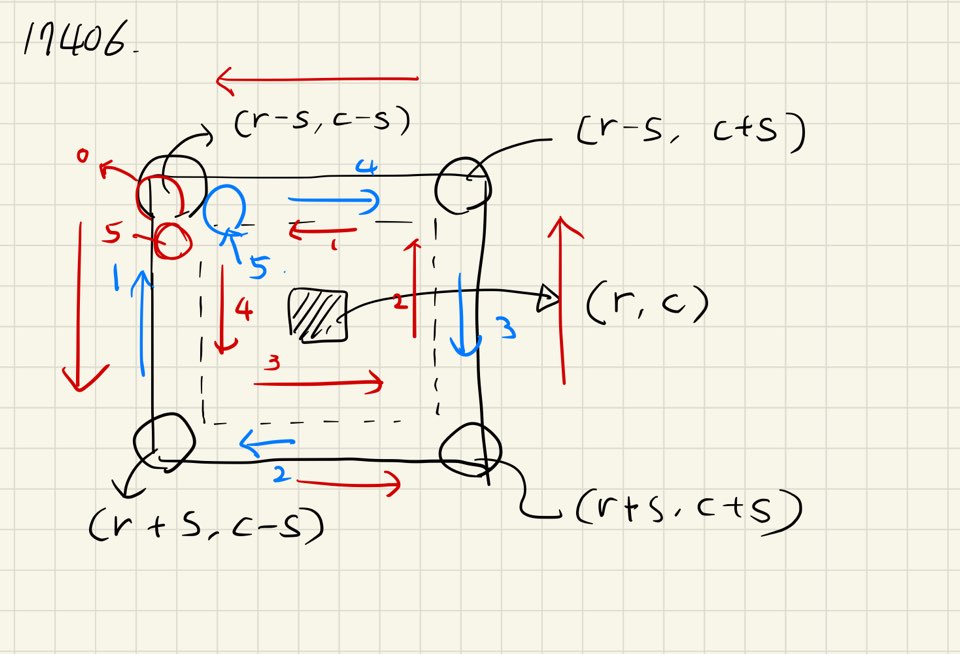 17406.
(r-s, c-s)
(r-s, c+s)
0
4
5
1
5.
1
4
2
(r, c)
3
3
2
(r+s, c-s)
(r+s, c+s)